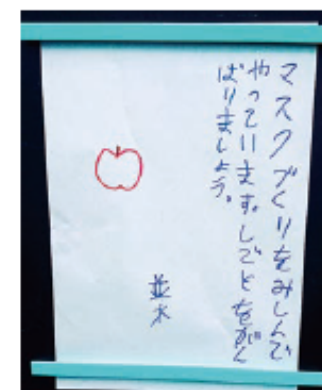 マスクづくりをみしんで
やっています。しごとをがん
ばりましょう。
並木